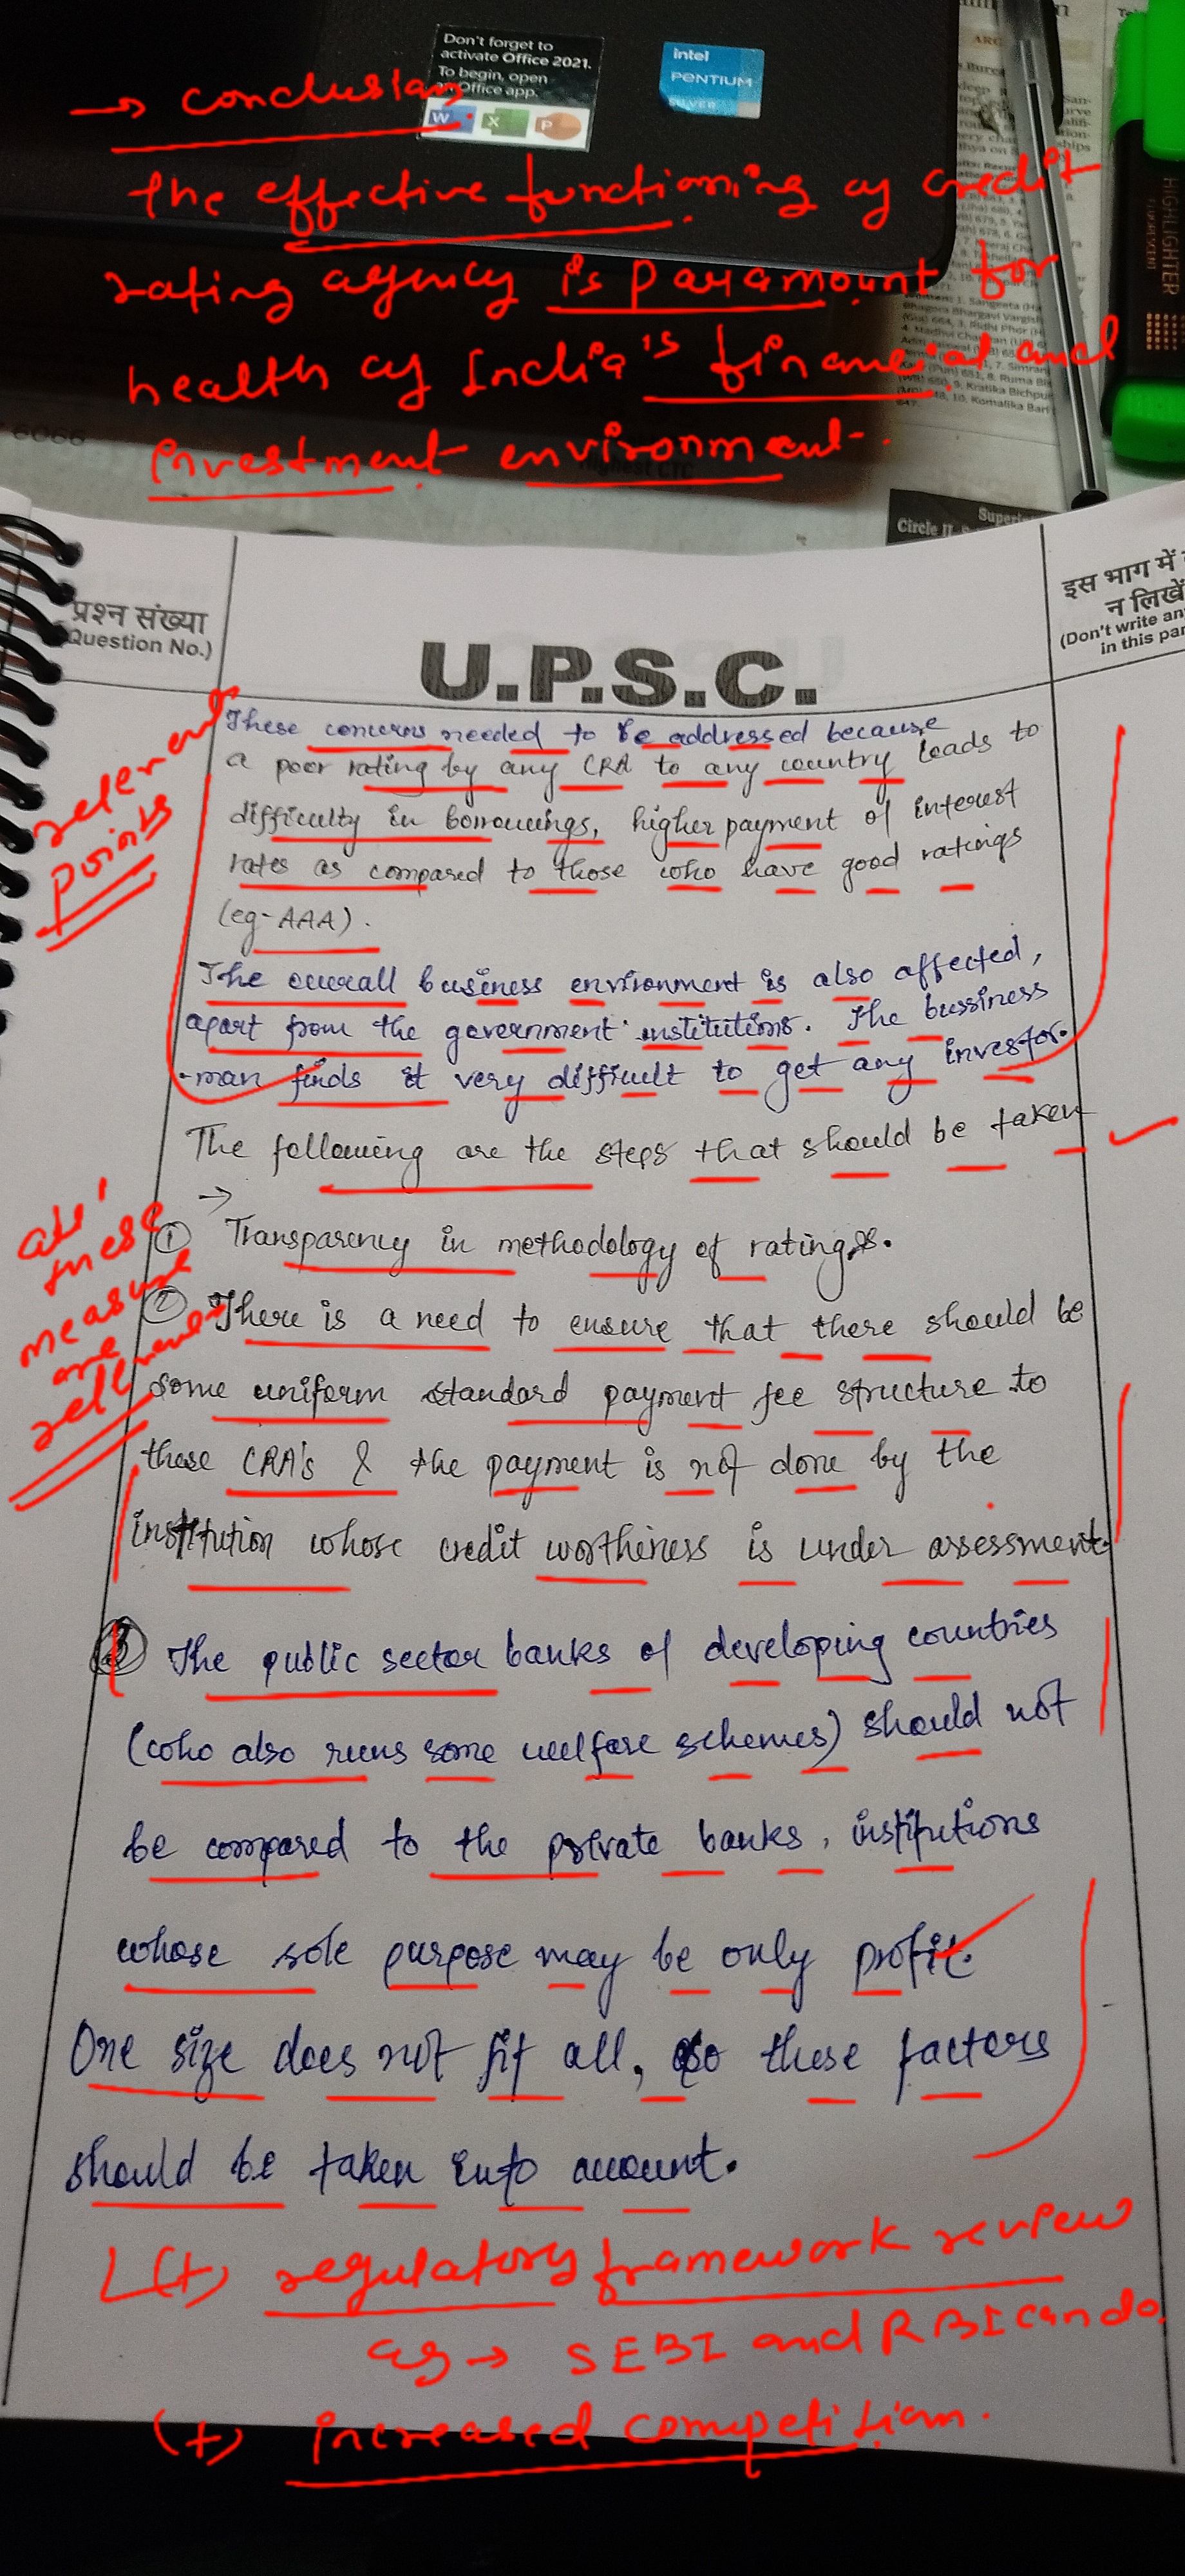 Don't forget to
activate Office 2021.
To begin, open
Office app.
W X P
intel
PENTIUM
SILVER
HIGHLIGHTER
→ conclusion
the effective functioning of credit
rating agency is paramount for
health of India's financial and
investment environment.
Circle
प्रश्न संख्या
(Question No.)
U.P.S.C.
इस भाग में
न लिखें
(Don't write an
in this par
relevant
points
These concerns needed to be addressed because
a poor rating by any CRA to any country leads to
difficulty in borrowings, higher payment of interest
rates as compared to those who have good ratings
(eg-AAA).
The overall business environment is also affected,
apart from the government institutions. The bussiness
-man finds it very difficult to get any investor.
The following are the steps that should be taken
→
all
these
measure
are
relevant
① Transparency in methodology of ratings.
② There is a need to ensure that there should be
some uniform standard payment fee structure to
these CRA's & the payment is not done by the
institution whose credit worthiness is under assessment.
③ The public sector banks of developing countries
(who also runs some welfare schemes) should not
be compared to the private banks, institutions
whose sole purpose may be only profit.
One size does not fit all, so these factors
should be taken into account.
(+) regulatory framework review
as → SEBI and RBI can do.
(+) increased competition.